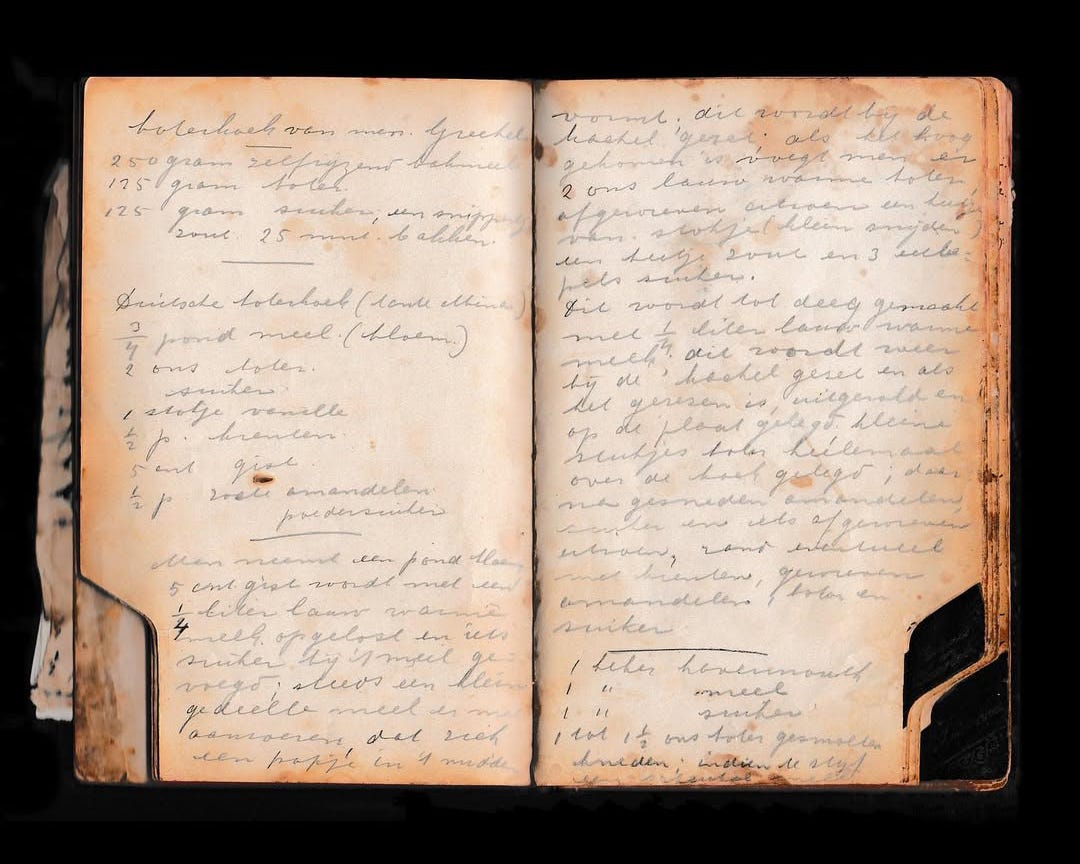 boterkoek van mevr.
250 gram zelfrijzend bakmeel
125 gram boter.
125 gram suiker, een snippertje
zout. 25 mnt. bakken.
Duitsche boterkoek (tante
3/4 pond meel. (bloem.)
2 ons boter.
suiker
1 stokje vanille
1/2 p. krenten.
5 cnt gist.
1/2 p. zoete amandelen
poedersuiker
Men neemt een pond bloem
5 cnt gist wordt met een
1/4 liter lauw warme
melk opgelost en iets
suiker bij 't meel ge-
voegd; steeds een klein
gedeelte meel er mee
aanroeren, dat zich
een papje in 't midden
vormt. dit wordt bij de
kachel gezet. als het hoog
gekomen is voegt men er
2 ons lauw warme boter,
afgewreven citroen een beetje
van stokje (klein snijden)
een beetje zout en 3 eetle-
pels suiker.
Dit wordt tot deeg gemaakt
met 1/4 liter lauw warme
melk. dit wordt weer
bij de kachel gezet en als
het gerezen is, uitgerold en
op de plaat gelegd. kleine
stukjes boter heelemaal
over de koek gelegd; daar
na gesneden amandelen,
suiker en iets afgewreven
citroen, rand eventueel
met krenten, gewreven
amandelen, boter en
suiker
1 beker havermouth
1 " meel
1 " suiker
1 tot 1 1/2 ons boter gesmolten
kneden. indien te stijf